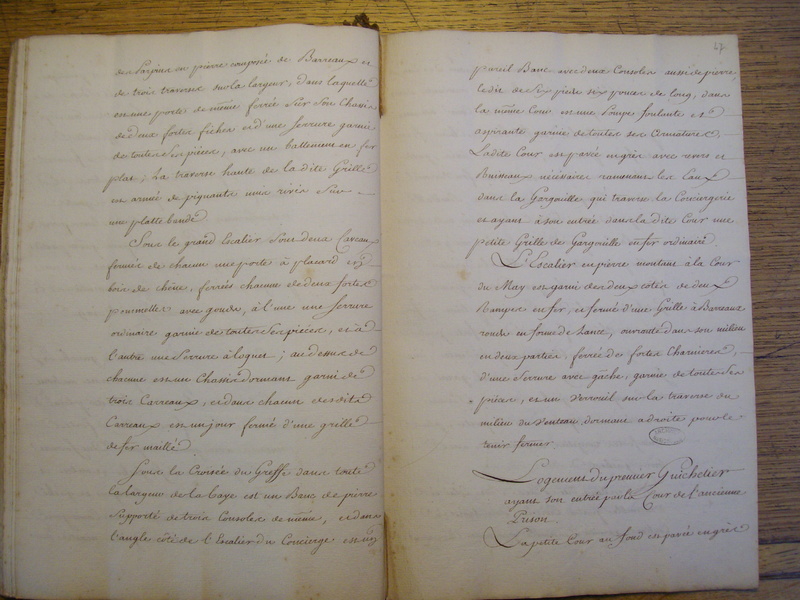 des Parpins en pierre composée de Barreaux et
de trois traverses sur la largeur, dans laquelle
est une porte de même ferrée sur son Chassis
de deux fortes fiches et d'une serrure garnie
de toutes ses pièces, avec un battement en fer
plat; La traverse haute de la dite Grille
est armée de pignants mis rivés sur
une platte bande
Sous le grand Escalier sont deux Caveaux
fermés de chacun une porte à placard en
bois de chêne, ferrés chacun de deux fortes
peaumelles avec gonds, à l'une une serrure
ordinaire garnie de toutes ses pièces, et à
l'autre une Serrure à loquet; au dessus de
chacune est un Chassis dormant garni de
trois Carreaux, et dans chacun des dits
Carreaux est un jour fermé d'une grille
de fer maillé
Sous la Croisée du Greffe dans toute
la largeur de la baye est un Banc de pierre
supporté de trois Consoles de même, et dans
l'angle côté de l'Escalier du Concierge est un
47
pareil Banc avec deux Consoles aussi de pierre,
le dit de six pieds six pouces de long, dans
la même Cour est une Pompe foulante et
aspirante garnie de toutes ses Armatures,
La dite Cour est pavée en grès avec revers et
Ruisseaux nécessaires ramenant les Eaux
dans la Gargouille qui traverse la Conciergerie
et ayant à son entrée dans la dite Cour une
petite Grille de Gargouille en fer ordinaire.
L'Escalier en pierre montant à la Cour
du May est garni des deux côtés de deux
Rampes en fer, et fermé d'une Grille à Barreaux
ronds en forme de Lance, ouvrante dans son milieu
en deux parties, ferrée de fortes Charnières,
d'une serrure avec gâche, garnie de toutes ses
pièces, et un Verrouil sur la traverse du
milieu du Venteau dormant à droite pour le
tenir fermer.
Logement du premier Guichetier
ayant son entrée par la Cour de l'ancienne
Prison.
La petite Cour au fond est pavée en grès